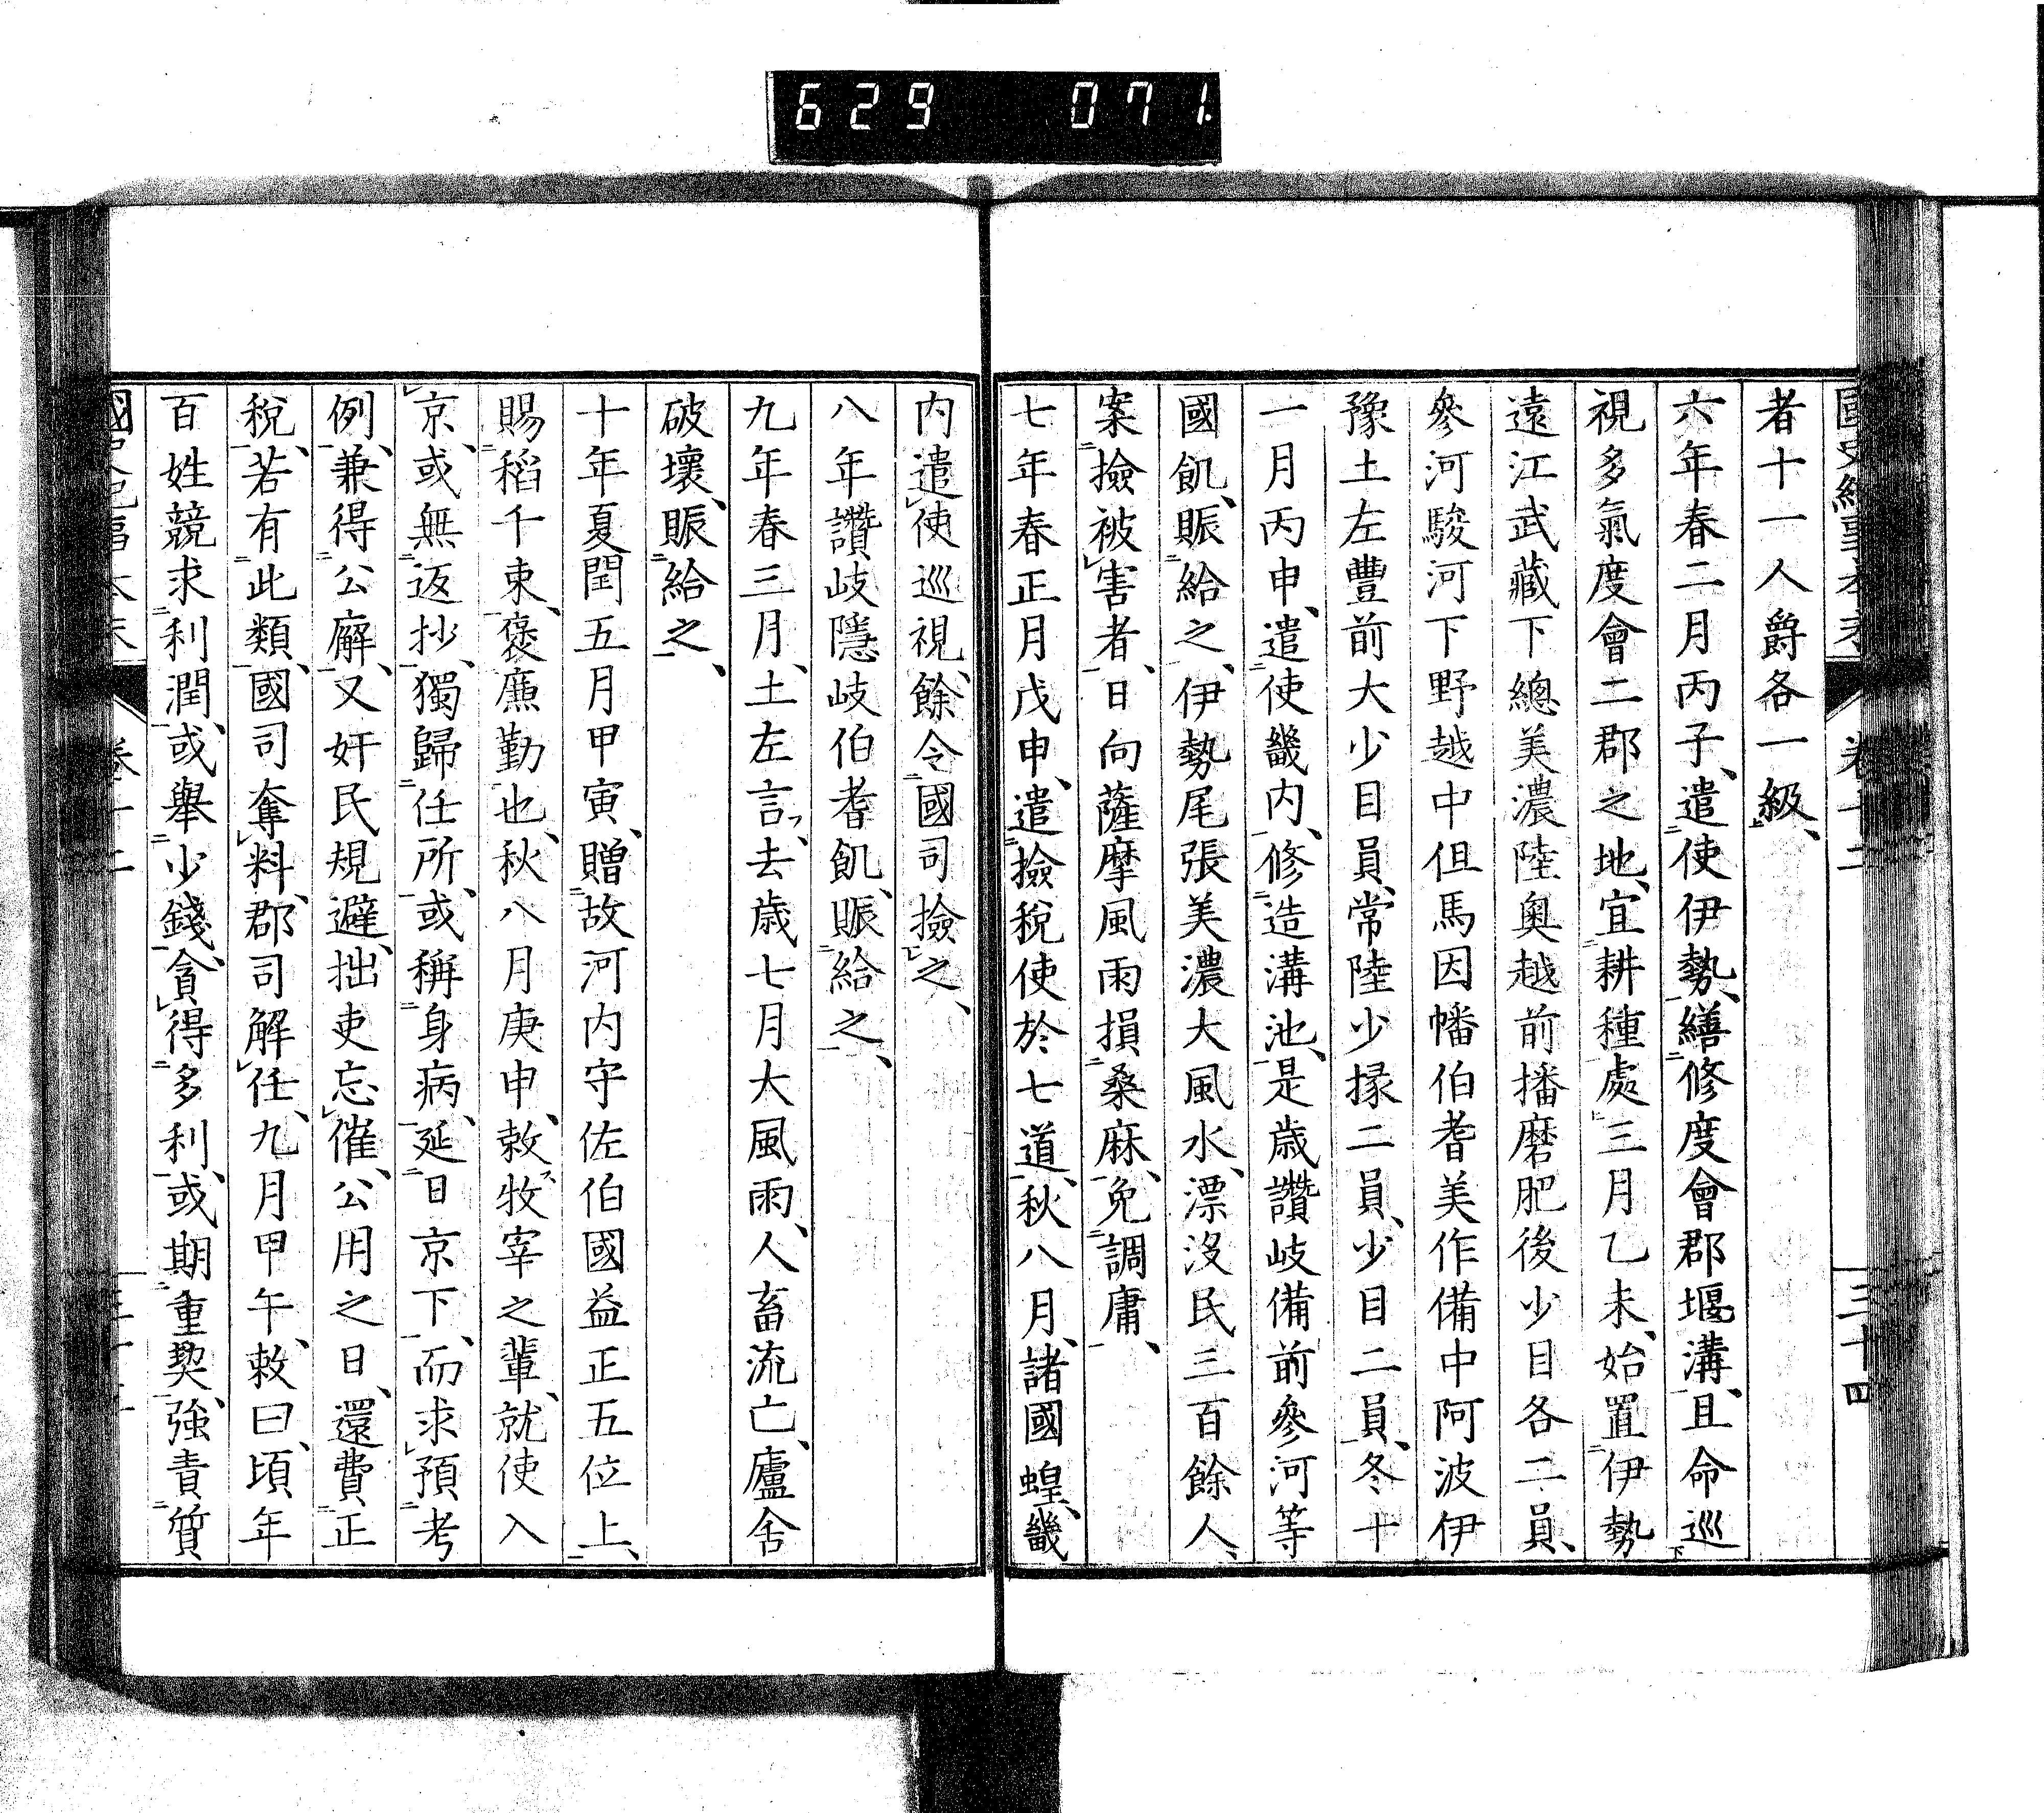 629 071
者十一人爵各一級、
六年春二月丙子、遣使伊勢、繕修度會郡堰溝、且命巡
視多氣度會二郡之地、宜耕種處三月乙未、始置伊勢
遠江武藏下總美濃陸奥越前播磨肥後少目各二員、
參河駿河下野越中但馬因幡伯耆美作備中阿波伊
豫土左豐前大少目員、常陸少掾二員、少目二員、冬十
一月丙申、遣使畿内、修造溝池、是歳讚岐備前參河等
國飢、賑給之、伊勢尾張美濃大風水、漂沒民三百餘人、
案撿被害者、日向薩摩風雨損桑麻、免調庸、
七年春正月戊申、遣撿稅使於七道、秋八月、諸國蝗、畿
内遣使巡視、餘令國司撿之、
八年讚岐隱岐伯耆飢、賑給之、
九年春三月、土左言、去歳七月大風雨、人畜流亡、廬舍
破壞、賑給之、
十年夏閏五月甲寅、贈故河内守佐伯國益正五位上、
賜稻千束、褒廉勤也、秋八月庚申、敕牧宰之輩、就使入
京、或無返抄、獨歸任所、或稱身病、延日京下、而求預考
例、兼得公廨、又奸民規避、拙吏忘催、公用之日、還費正
稅、若有此類、國司奪料、郡司解任、九月甲午、敕曰、頃年
百姓競求利潤、或舉少錢、貪得多利、或期重契、強責質